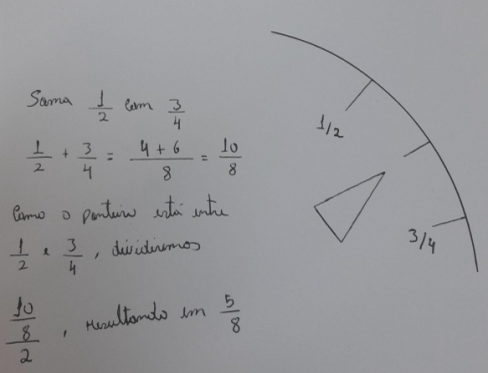 Soma 1/2 com 3/4
1/2 + 3/4 = (4 + 6)/8 = 10/8
Como o ponteiro está entre
1/2 e 3/4, dividiremos
(10/8)/2, resultando em 5/8
1/2
3/4